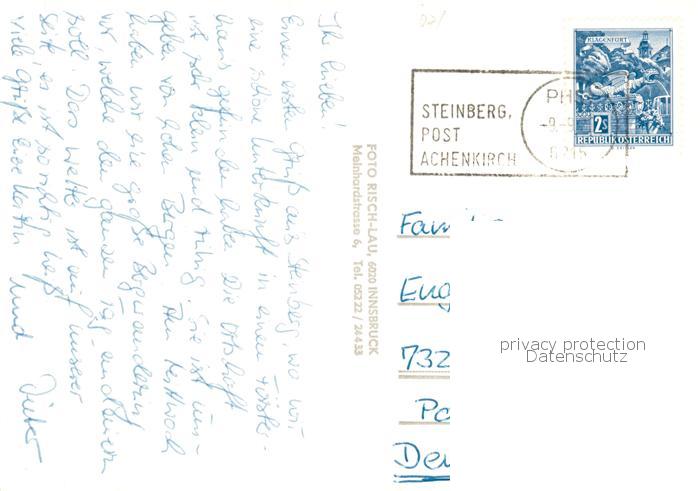 Ihr Lieben!
Einen ersten Gruß aus Steinberg, wo wir
eine schöne Unterkunft in einem Förster-
haus gefunden haben. Die Ortschaft
ist sehr klein und ruhig. Sie ist um-
geben von hohen Bergen. Am Mittwoch
haben wir eine große Bergwanderung
vor, welche den ganzen Tag andauern
soll. Das Wetter ist auf unserer
Seite, es ist so richtig heiß
Viele Grüße Eure
und Dieter
FOTO RISCH-LAU, 6020 INNSBRUCK
Meinhardstrasse 6, Tel. 05222 / 24433
STEINBERG,
POST
ACHENKIRCH
KLAGENFURT
2S
REPUBLIK ÖSTERREICH
Fam
Eug
732
Po
Deu
privacy protection
Datenschutz